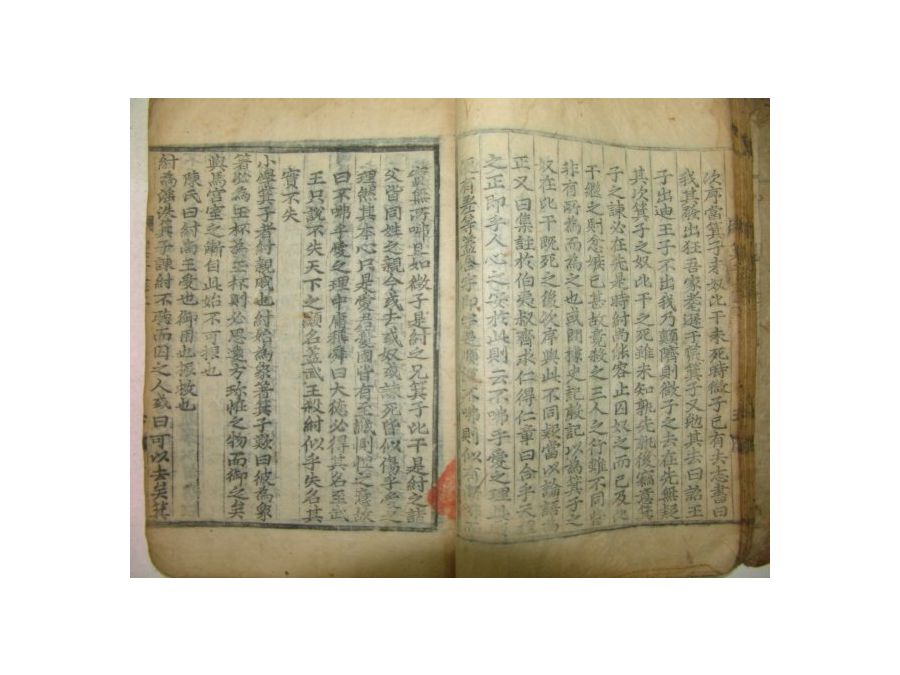 次序當箕子未奴比干未死時微子已有去志書曰
我其發出狂吾家耄遜于箕子又勉其去曰詔王
子出迪王子不出我乃顚隮則微子之去在先無疑
其次箕子之奴比干之死雖未知孰先孰後
子之諫必在先是時紂尙能容止囚奴之而已及
干繼之則忿嫉已甚故竟殺之三人之行雖不同皆
非有所爲而爲之也或問據史記殷記以爲箕子之
奴在比干旣死之後次序與此不同疑當以論語爲
正又曰集註於伯夷叔齊求仁得仁章曰合乎天理
之正卽乎人心之安於此則云不咈乎愛之理
則似有
無所咈且如微子是紂之兄箕子比干是紂之諸
父皆同姓之親今或去或奴或諫死皆似傷乎愛之
理然其本心只是愛君憂國皆有至誠惻怛之意故
曰不咈乎愛之理中庸稱舜曰大德必得其名至武
王只說不失天下之顯名蓋武王殺紂似乎失名其
實不失
小學箕子者紂親戚也紂始爲象箸箕子歎曰彼爲象
箸必爲玉杯爲玉杯則必思遠方珍怪之物而御之矣
輿馬宮室之漸自此始不可振也
陳氏曰紂商王受也御用也振救也
紂爲淫泆箕子諫紂不聽而囚之人或曰可以去矣箕